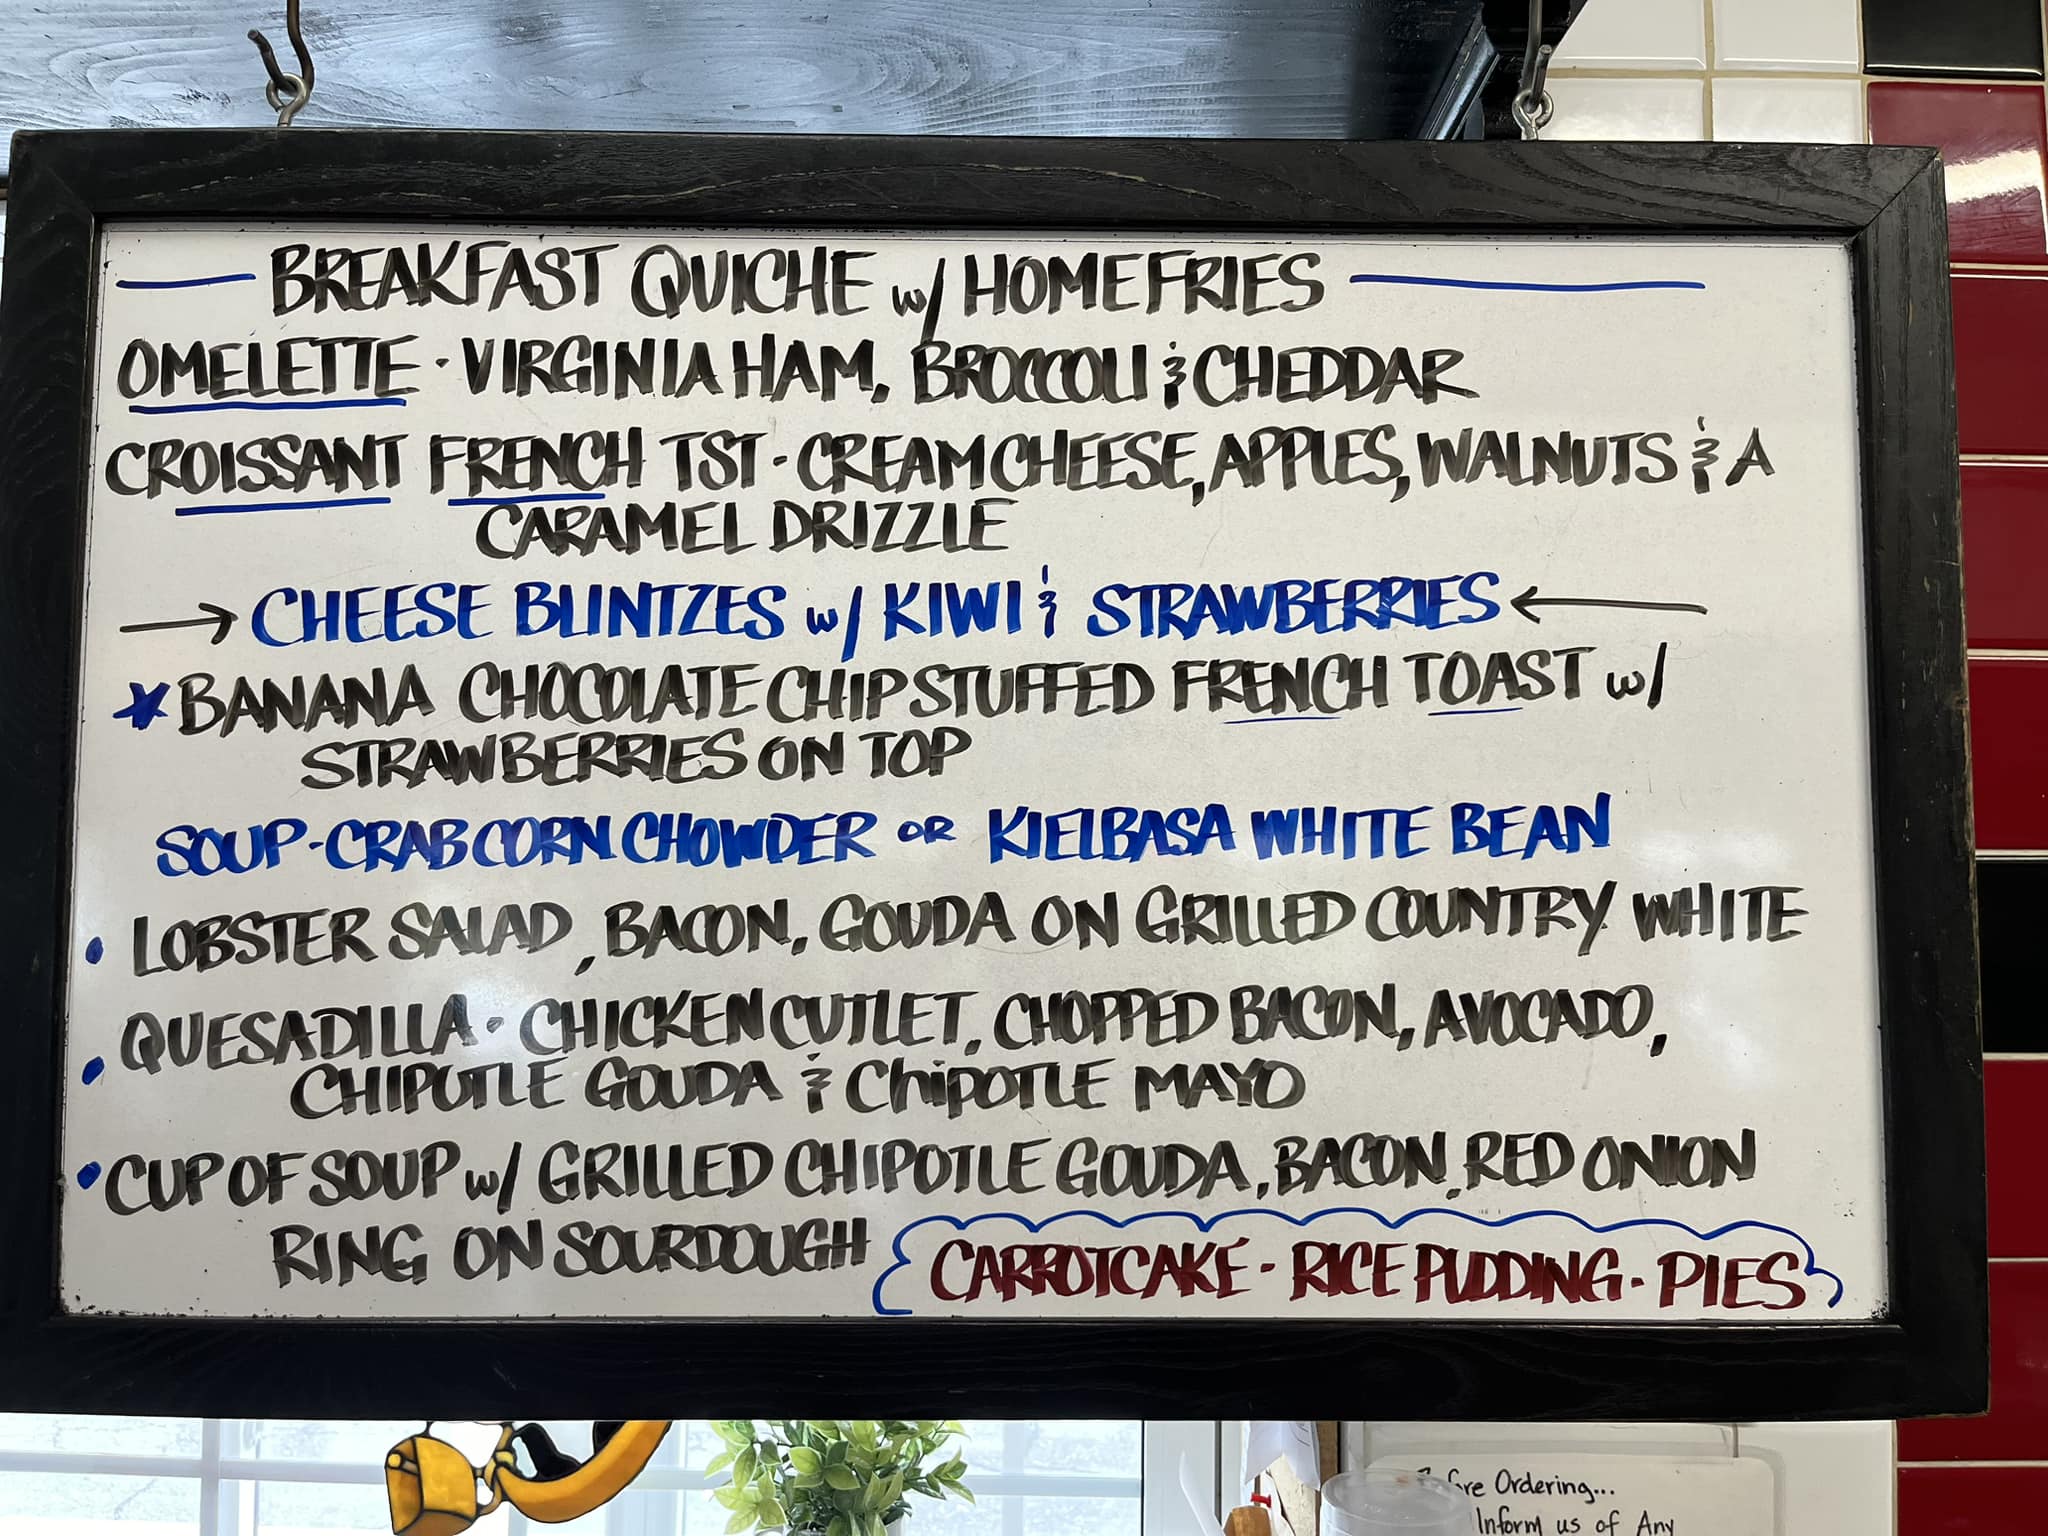 BREAKFAST QUICHE w/ HOMEFRIES
OMELETTE - VIRGINIA HAM, BROCCOLI & CHEDDAR
CROISSANT FRENCH TST - CREAM CHEESE, APPLES, WALNUTS & A
CARAMEL DRIZZLE
→ CHEESE BLINTZES w/ KIWI & STRAWBERRIES ←
* BANANA CHOCOLATE CHIP STUFFED FRENCH TOAST w/
STRAWBERRIES ON TOP
SOUP - CRAB CORN CHOWDER OR KIELBASA WHITE BEAN
• LOBSTER SALAD, BACON, GOUDA ON GRILLED COUNTRY WHITE
• QUESADILLA - CHICKEN CUTLET, CHOPPED BACON, AVOCADO,
CHIPOTLE GOUDA & CHIPOTLE MAYO
• CUP OF SOUP w/ GRILLED CHIPOTLE GOUDA, BACON, RED ONION
RING ON SOURDOUGH
CARROTCAKE - RICE PUDDING - PIES
Ordering...
Inform us of Any